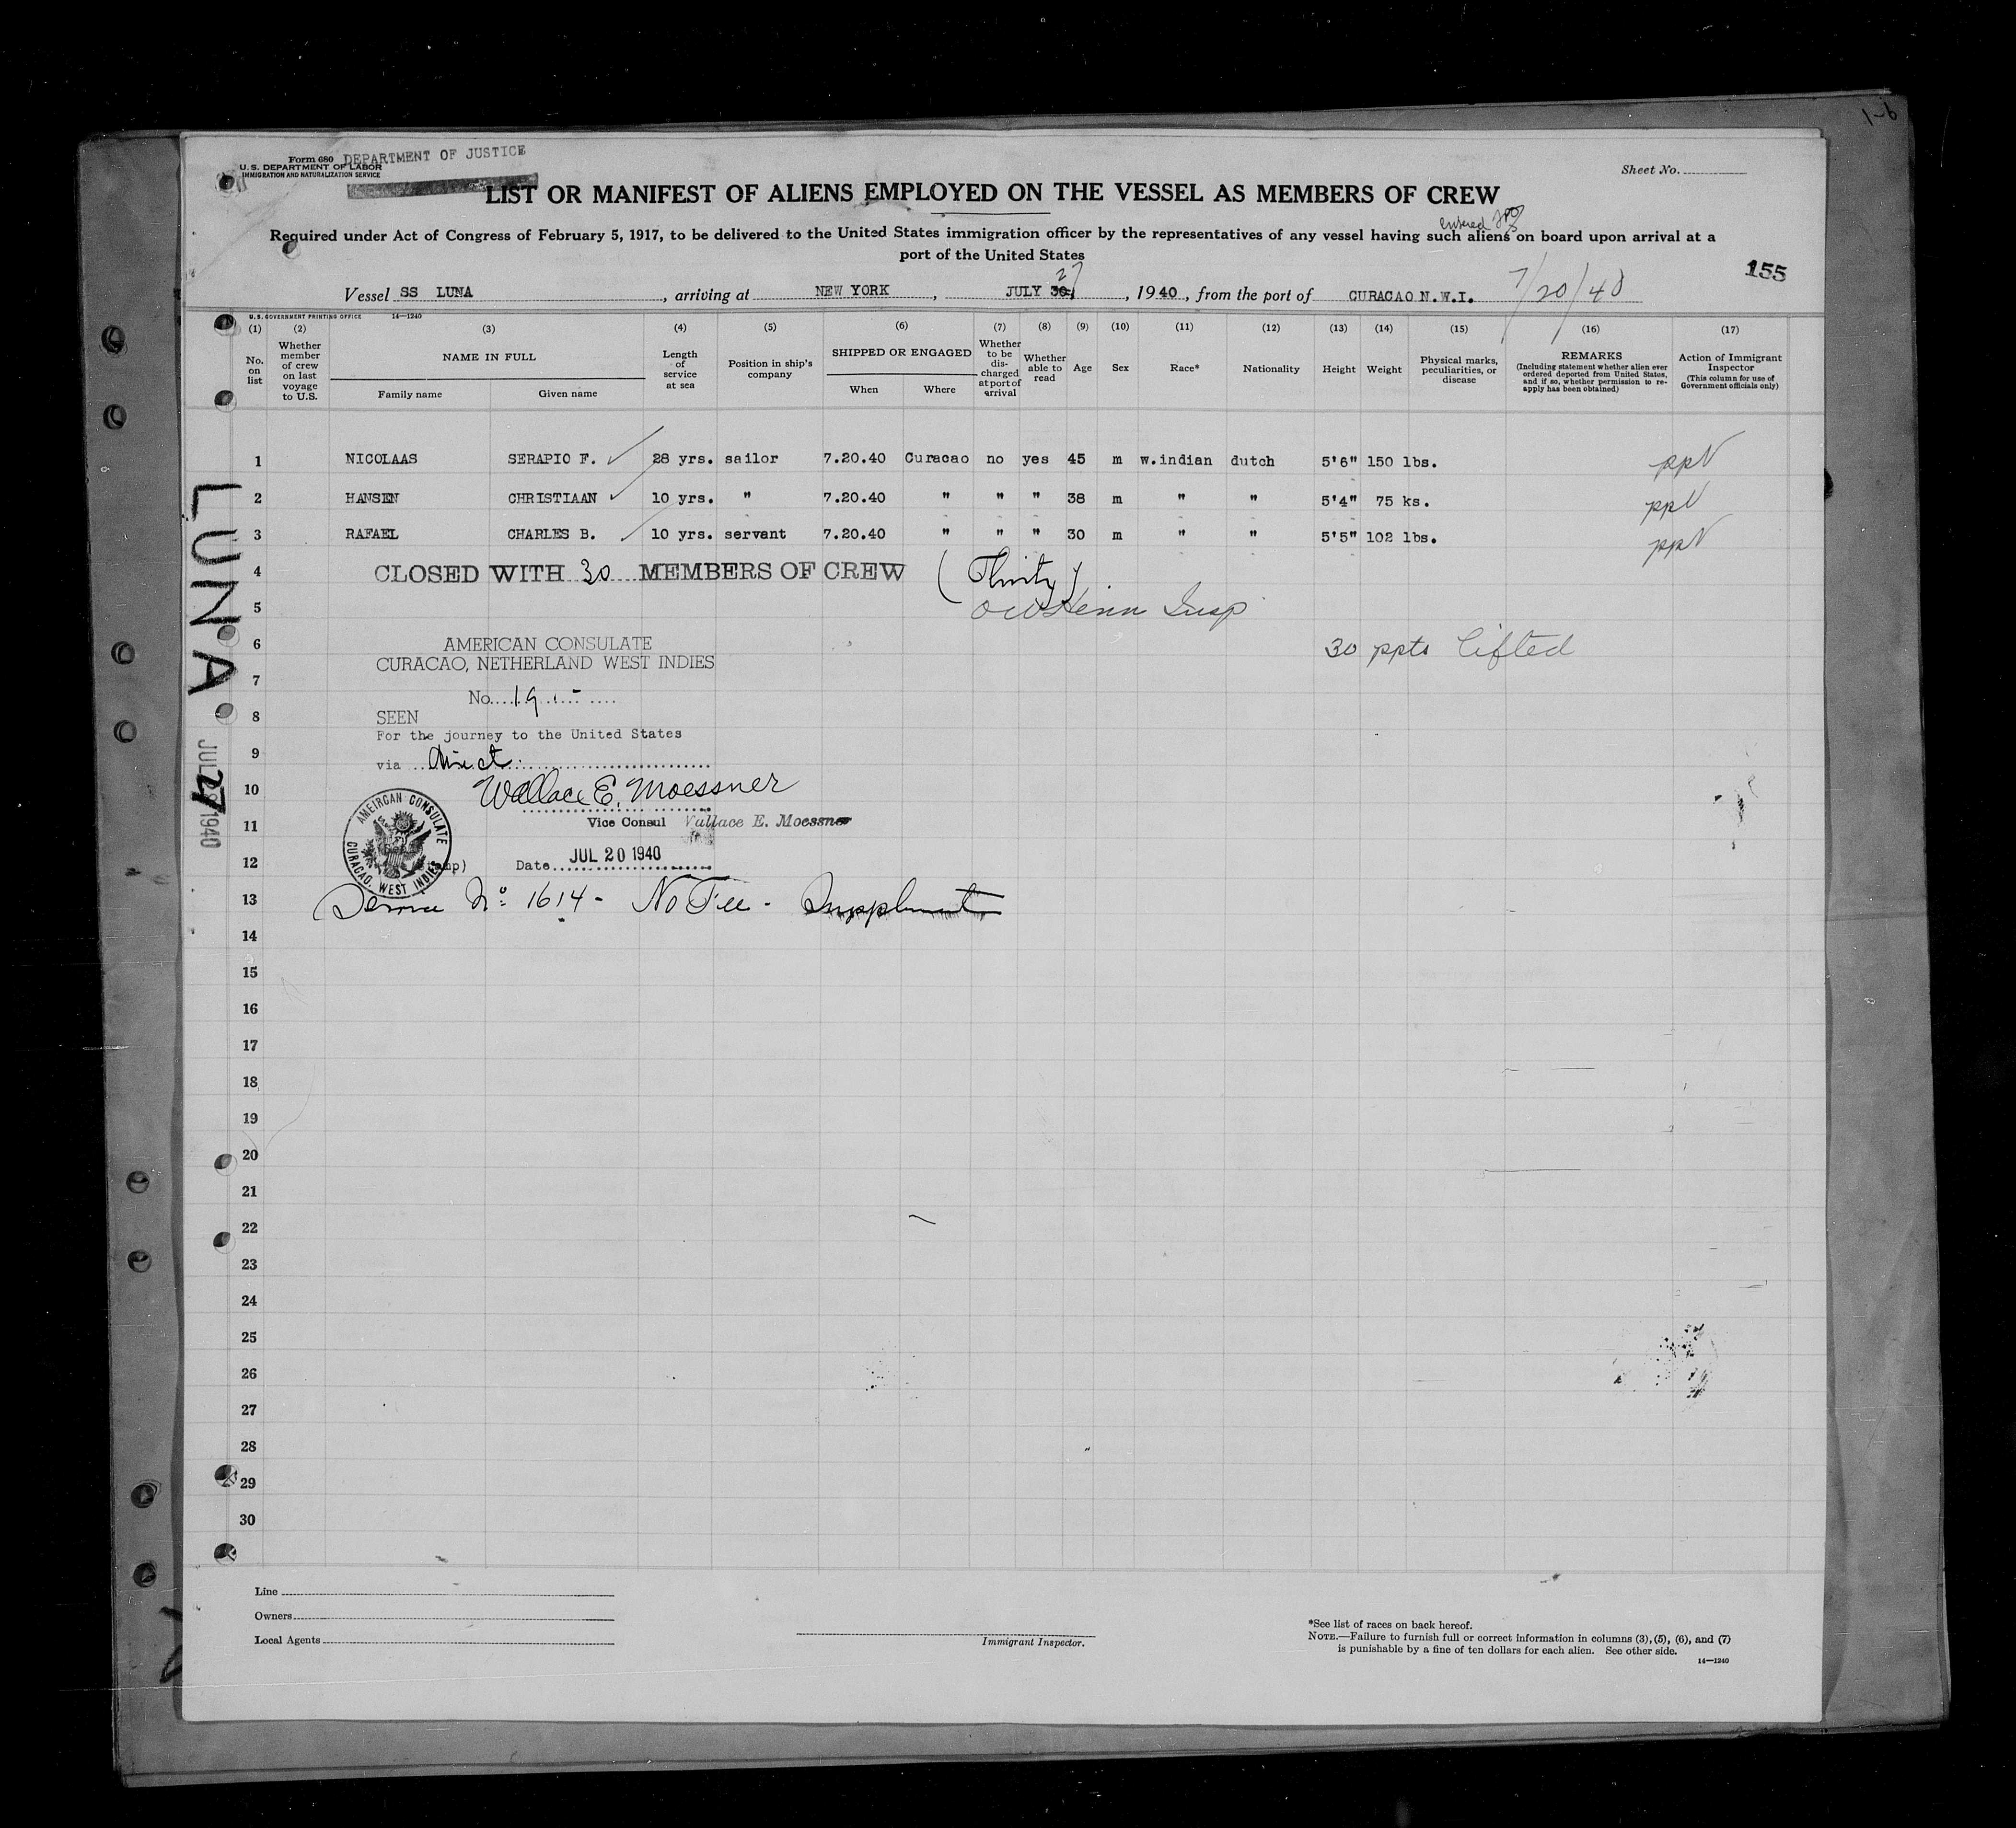 1-6
Form 680 DEPARTMENT OF JUSTICE
U. S. DEPARTMENT OF LABOR
IMMIGRATION AND NATURALIZATION SERVICE
Sheet No.
LIST OR MANIFEST OF ALIENS EMPLOYED ON THE VESSEL AS MEMBERS OF CREW
Required under Act of Congress of February 5, 1917, to be delivered to the United States immigration officer by the representatives of any vessel having such aliens on board upon arrival at a
port of the United States
155
Vessel SS LUNA, arriving at NEW YORK, JULY 30 27, 1940, from the port of CURACAO N.W.I. 7/20/40
U. S. GOVERNMENT PRINTING OFFICE 14—1240
(1) (2) (3) (4) (5) (6) (7) (8) (9) (10) (11) (12) (13) (14) (15) (16) (17)
No. on list
Whether member of crew on last voyage to U.S.
NAME IN FULL
Family name Given name
Length of service at sea
Position in ship's company
SHIPPED OR ENGAGED
When Where
Whether to be discharged at port of arrival
Whether able to read
Age
Sex
Race*
Nationality
Height
Weight
Physical marks, peculiarities, or disease
REMARKS
(Including statement whether alien ever ordered deported from United States, and if so, whether permission to reapply has been obtained)
Action of Immigrant Inspector
(This column for use of Government officials only)
1 NICOLAAS SERAPIO F. 28 yrs. sailor 7.20.40 Curacao no yes 45 m w.indian dutch 5'6" 150 lbs. ppt
2 HANSEN CHRISTIAAN 10 yrs. " 7.20.40 " " " 38 m " " 5'4" 75 ks. ppt
3 RAFAEL CHARLES B. 10 yrs. servant 7.20.40 " " " 30 m " " 5'5" 102 lbs. ppt
4 CLOSED WITH 30 MEMBERS OF CREW (Thirty)
5 Insp
6 AMERICAN CONSULATE 30 ppts lifted
CURACAO, NETHERLAND WEST INDIES
7
No.
8 SEEN
For the journey to the United States
9 via direct.
10 Wallace E. Moessner
11 Vice Consul Wallace E. Moessner
12 Date JUL 20 1940
AMEIRCAN CONSULATE
CURACAO, WEST INDIES
13 Service No. 1614 - No Fee - Supplement
14
15
16
17
18
19
20
21
22
23
24
25
26
27
28
29
30
LUNA
JUL 27 1940
Line
Owners
Local Agents
Immigrant Inspector.
*See list of races on back hereof.
NOTE.—Failure to furnish full or correct information in columns (3), (5), (6), and (7)
is punishable by a fine of ten dollars for each alien. See other side.
14—1240